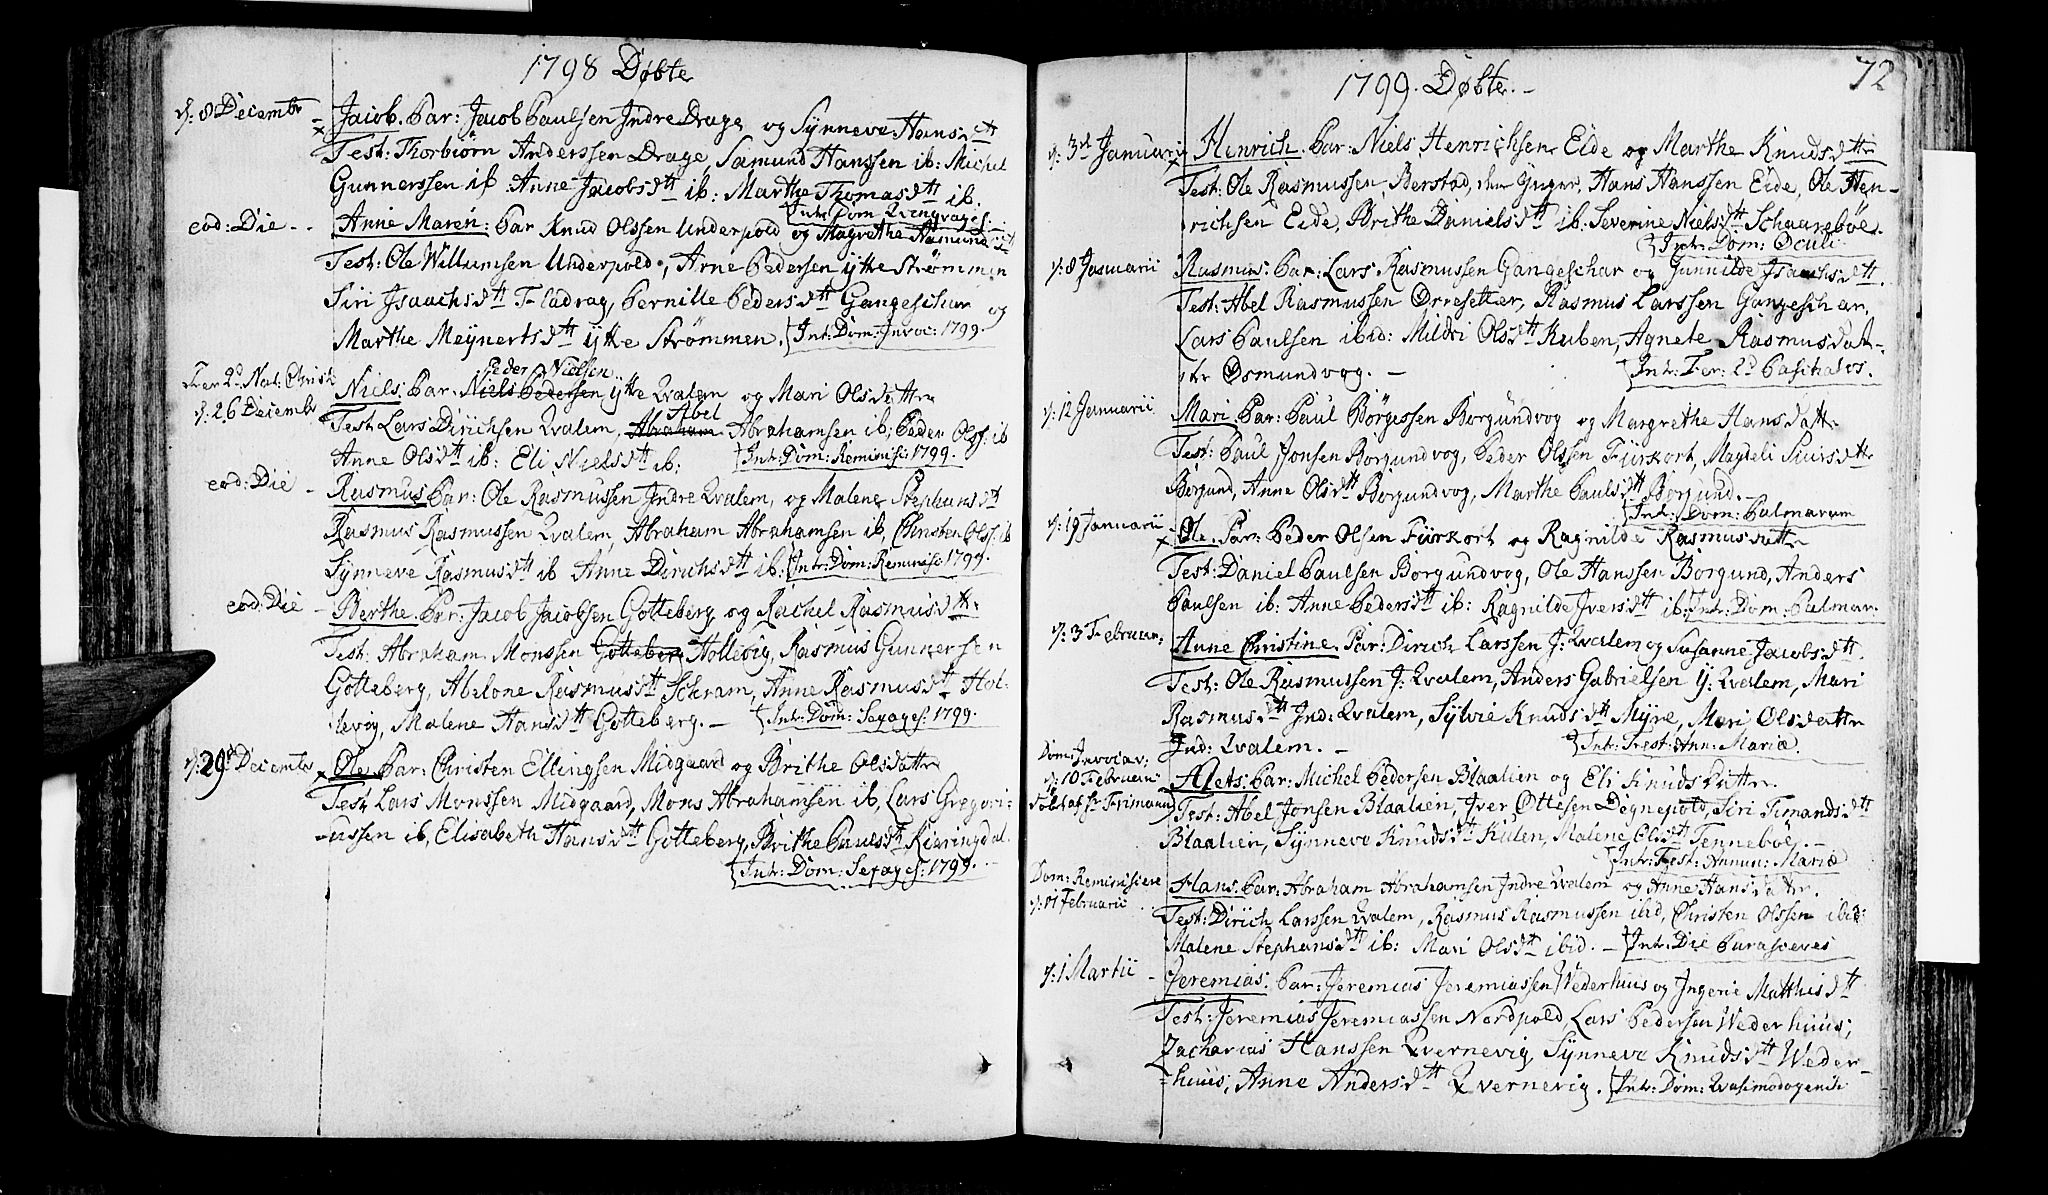 1798 Døbte
d: 8 Decembr Jacob. Par: Jacob Paulsen Indre Drage og Synneve Hansdtt
Test: Thorbiørn Anderssen Drage, Samund Hanssen ib: Michel
Gunnerssen ib: Anne Jacobsdtt ib: Marthe Thomasdtt ib.
Intr: Dom
eod: Die - Anne Maren: Par Knud Olssen Underpold og Magrethe
Test: Ole Willumsen Underpold, Arne Pedersen ytte Strømmen
Siri Isaachsdtt Fladrag, Pernille Pedersdtt Gangeschar og
Marthe Meynertsdtt ytte Strømmen. Int: Dom: Invoc: 1799.
Peder Nielsen
Fer 2d Nat: Christi Niels. Par: Niels Pedersen ytte Qvalem og Mari Olsdatter
d: 26 Decembr Test Lars Dirichsen Qvalem, Abraham Abel Abrahamsen ib; Peder Olss: ib
Anne Olsdtt ib: Eli Nielsdtt ib: Int: Dom: Reminisc: 1799.
eod: Die - Rasmus Par: Ole Rasmussen Indre Qvalem, og Malene Stephansdtt
Rasmus Rasmussen Qvalem, Abraham Abrahamsen ib, Christen Olss: ib
Synneve Rasmusdtt ib Anne Dirichsdtt ib: Intr: Dom: Reminisc: 1799.
eod: Die - Berthe. Par: Jacob Jacobsen Gotteberg og Rachel Rasmusdtr
Test: Abraham Monssen Gotteberg Hollevig, Rasmus Gunnersen
Gotteberg, Abelone Rasmusdtt Schram, Anne Rasmusdtt Hol-
levog, Malene Hansdtt Gotteberg. - Int: Dom: Sexages: 1799.
d: 29d Decembr Ole Par: Christen Ellingsen Midgaard og Brithe Olsdatter
Test Lars Monssen Midgaard, Mons Abrahamsen ib, Lars Gregori-
ussen ib, Elisabeth Hansdtt Gotteberg, Brithe Paulsdtt Kieringdal.
Int: Dom: Sexages: 1799.
72
1799. Døbte. -
d: 3d Januarii Henrich. Par: Niels Henrichsen Eide og Marthe Knudsdttr
Test: Ole Rasmussen Berstad, den Ynger, Hans Hanssen Eide, Ole Hen-
richsen Eide, Brithe Danielsdtt ib. Severine Nielsdtt Schaarebøe.
Int: Dom: Oculi.
d: 8 Januarii Rasmus: Par: Lars Rasmussen Gangeschar og Gunnilde Isaachsdtt.
Test: Abel Rasmussen Orresetter, Rasmus Larssen Gangeschar,
Lars Paulsen ibid: Mildri Olsdtt Kuben, Agnete Rasmusdat-
ter Osmundvog. - Int: Fer: 2d Paschatos.
d: 12 Januarii Mari. Par: Paul Børgessen Borgundvog og Margrethe Hansdatter
Test: Paul Jonsen Borgundvog, Peder Olssen Furkort, Magdeli Siursdttr
Borgund, Anne Olsdtt Borgundvog, Marthe Paulsdtt Borgund. -
Int: Dom: Palmarum
d: 19 Januarii Ole. Par: Peder Olsen Furkort og Ragnilde Rasmusdatter
Test: Daniel Paulsen Borgundvog, Ole Hanssen Borgund, Anders
Paulsen ib: Anne Pedersdtt ib: Ragnilde Iversdtt ib: Int: Dom. Palmar.
d: 3 Februar: Anne Christine. Par: Dirich Larssen I: Qvalem og Susanne Jacobsdtt.
Test: Ole Rasmussen I: Qvalem, Anders Gabrielsen y: Qvalem, Mari
Rasmusdtt Ind: Qvalem, Sylvie Knudsdtt Myre, Mari Olsdatter
Ind: Qvalem. - Int: Frest: Ann: Mariæ.
Dom: Invocav:
d: 10 Februarii Alets. Par: Michel Pedersen Blaalien og Eli Knudsdatter
døbt af Hr Frimann Test: Abel Jonsen Blaalien, Iver Ottesen Degnepold, Siri Timandsdtt
Blaalien, Synneve Knudsdtt Kulen, Malene Olsdtt Tennebøe. -
Int: Fest: Annun: Mariæ
Dom: Reminiscere Hans. Par: Abraham Abrahamsen Indre Qvalem og Anne Hansdatter.
d: 17 Februarii Test: Dirich Larssen Qvalem, Rasmus Rasmussen ibid, Christen Olssen ibid:
Malene Stephansdtt ib: Mari Olsdtt ibid. - Int: Die Parasceves
d: 1 Martii - Jeremias. Par: Jeremias Jeremiassen Wederhuus og Ingerie Matthisdtt
Test: Jeremias Jeremiassen Nordpold, Lars Pedersen Wederhuus,
Zacharias Hanssen Qvernevig, Synneve Knudsdtt Weder-
huus, Anne Andersdtt Qvernevig. Int: Dom: Qvasimodogeniti